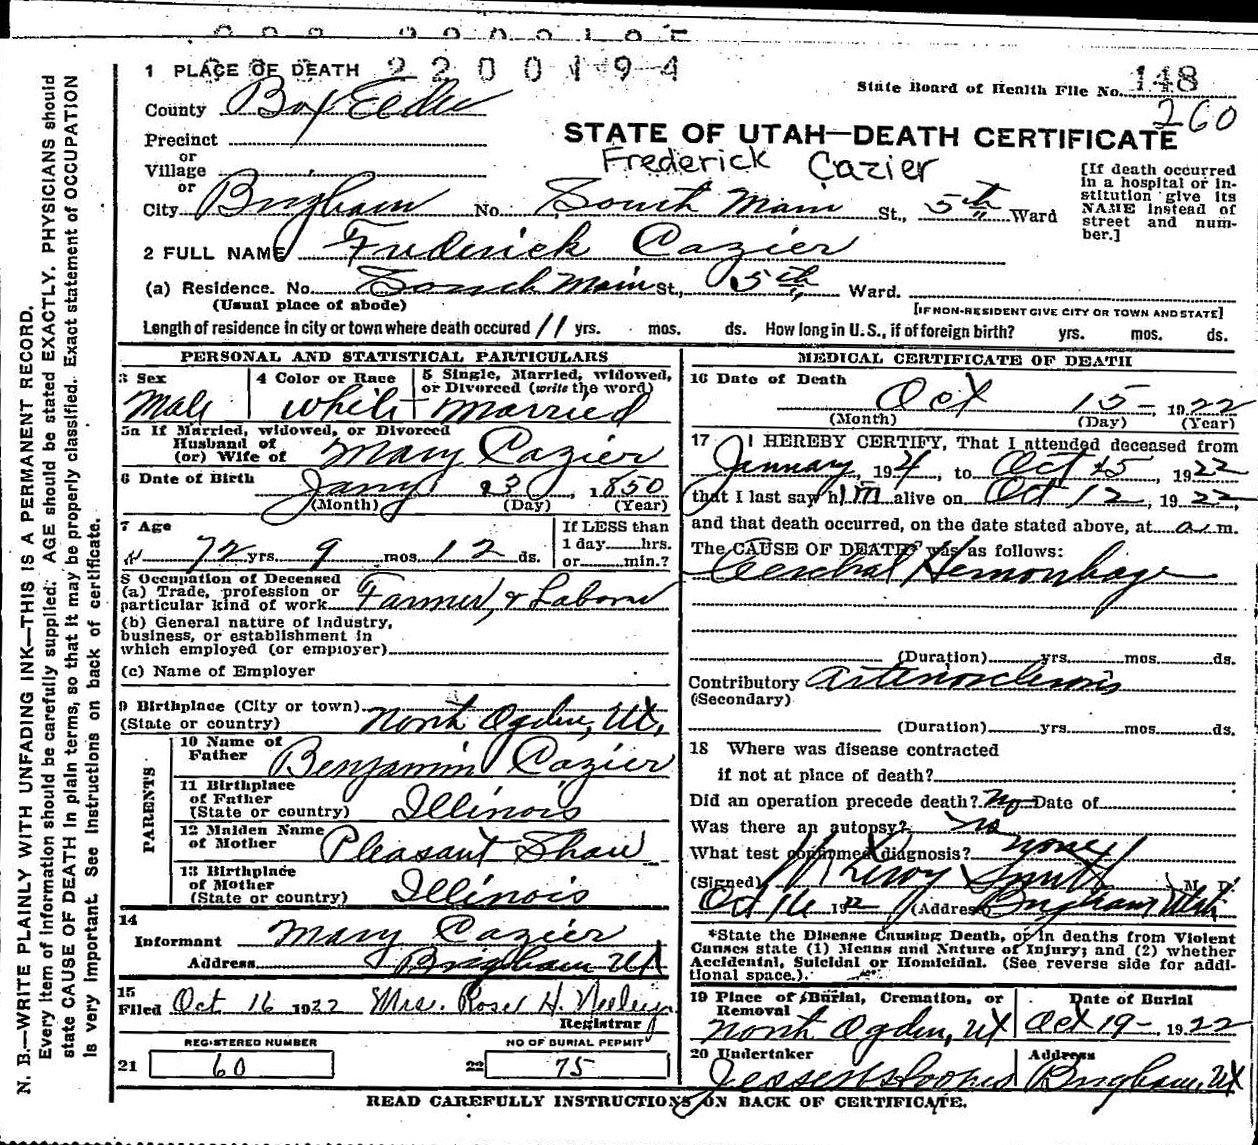 1 PLACE OF DEATH 2200194
State Board of Health File No. 148
260
County Box Elder
STATE OF UTAH—DEATH CERTIFICATE
Precinct
or
Village
or
Frederick Cazier
[If death occurred in a hospital or institution give its NAME instead of street and number.]
City Brigham No. South Main St., 5th Ward
2 FULL NAME Frederick Cazier
(a) Residence. No. South Main St., 5th Ward.
(Usual place of abode)
[IF NON-RESIDENT GIVE CITY OR TOWN AND STATE]
Length of residence in city or town where death occured 11 yrs. mos. ds. How long in U.S., if of foreign birth? yrs. mos. ds.
PERSONAL AND STATISTICAL PARTICULARS
3 Sex
Male
4 Color or Race
White
5 Single, Married, widowed, or Divorced (write the word)
Married
5a If Married, widowed, or Divorced
Husband of
(or) Wife of Mary Cazier
6 Date of Birth Jany 23, 1850
(Month) (Day) (Year)
7 Age
72 yrs. 9 mos. 12 ds.
If LESS than
1 day......hrs.
or......min.?
8 Occupation of Deceased
(a) Trade, profession or
particular kind of work Farmer, & Labor
(b) General nature of industry,
business, or establishment in
which employed (or employer)
(c) Name of Employer
9 Birthplace (City or town)
(State or country) North Ogden, Ut,
PARENTS
10 Name of
Father Benjamin Cazier
11 Birthplace
of Father
(State or country) Illinois
12 Maiden Name
of Mother Pleasant Shaw
13 Birthplace
of Mother
(State or country) Illinois
14
Informant Mary Cazier
Address Brigham Ut
15
Filed Oct 16 1922 Mrs. Rose H. Neeley
Registrar
REGISTERED NUMBER
21 60
NO OF BURIAL PERMIT
22 75
MEDICAL CERTIFICATE OF DEATH
16 Date of Death
Oct 15- 1922
(Month) (Day) (Year)
17 I HEREBY CERTIFY, That I attended deceased from
January, 19 to Oct 15, 1922
that I last saw him alive on Oct 12, 1922,
and that death occurred, on the date stated above, at a.m.
The CAUSE OF DEATH* was as follows:
Cerebral Hemorrhage
(Duration) yrs. mos. ds.
Contributory Arteriosclerosis
(Secondary)
(Duration) yrs. mos. ds.
18 Where was disease contracted
if not at place of death?
Did an operation precede death? No Date of
Was there an autopsy? no
What test confirmed diagnosis? none
(Signed) Leroy Smith M. D.
Oct 16 1922 (Address) Brigham Utah
*State the Disease Causing Death, or in deaths from Violent
Causes state (1) Means and Nature of Injury; and (2) whether
Accidental, Suicidal or Homicidal. (See reverse side for additional space.)
19 Place of Burial, Cremation, or
Removal
North Ogden, Ut
Date of Burial
Oct 19-, 1922
20 Undertaker
Address
Brigham, Ut
READ CAREFULLY INSTRUCTIONS ON BACK OF CERTIFICATE.
N. B.—WRITE PLAINLY WITH UNFADING INK—THIS IS A PERMANENT RECORD.
Every item of information should be carefully supplied; AGE should be stated EXACTLY. PHYSICIANS should
state CAUSE OF DEATH in plain terms, so that it may be properly classified. Exact statement of OCCUPATION
is very important. See instructions on back of certificate.